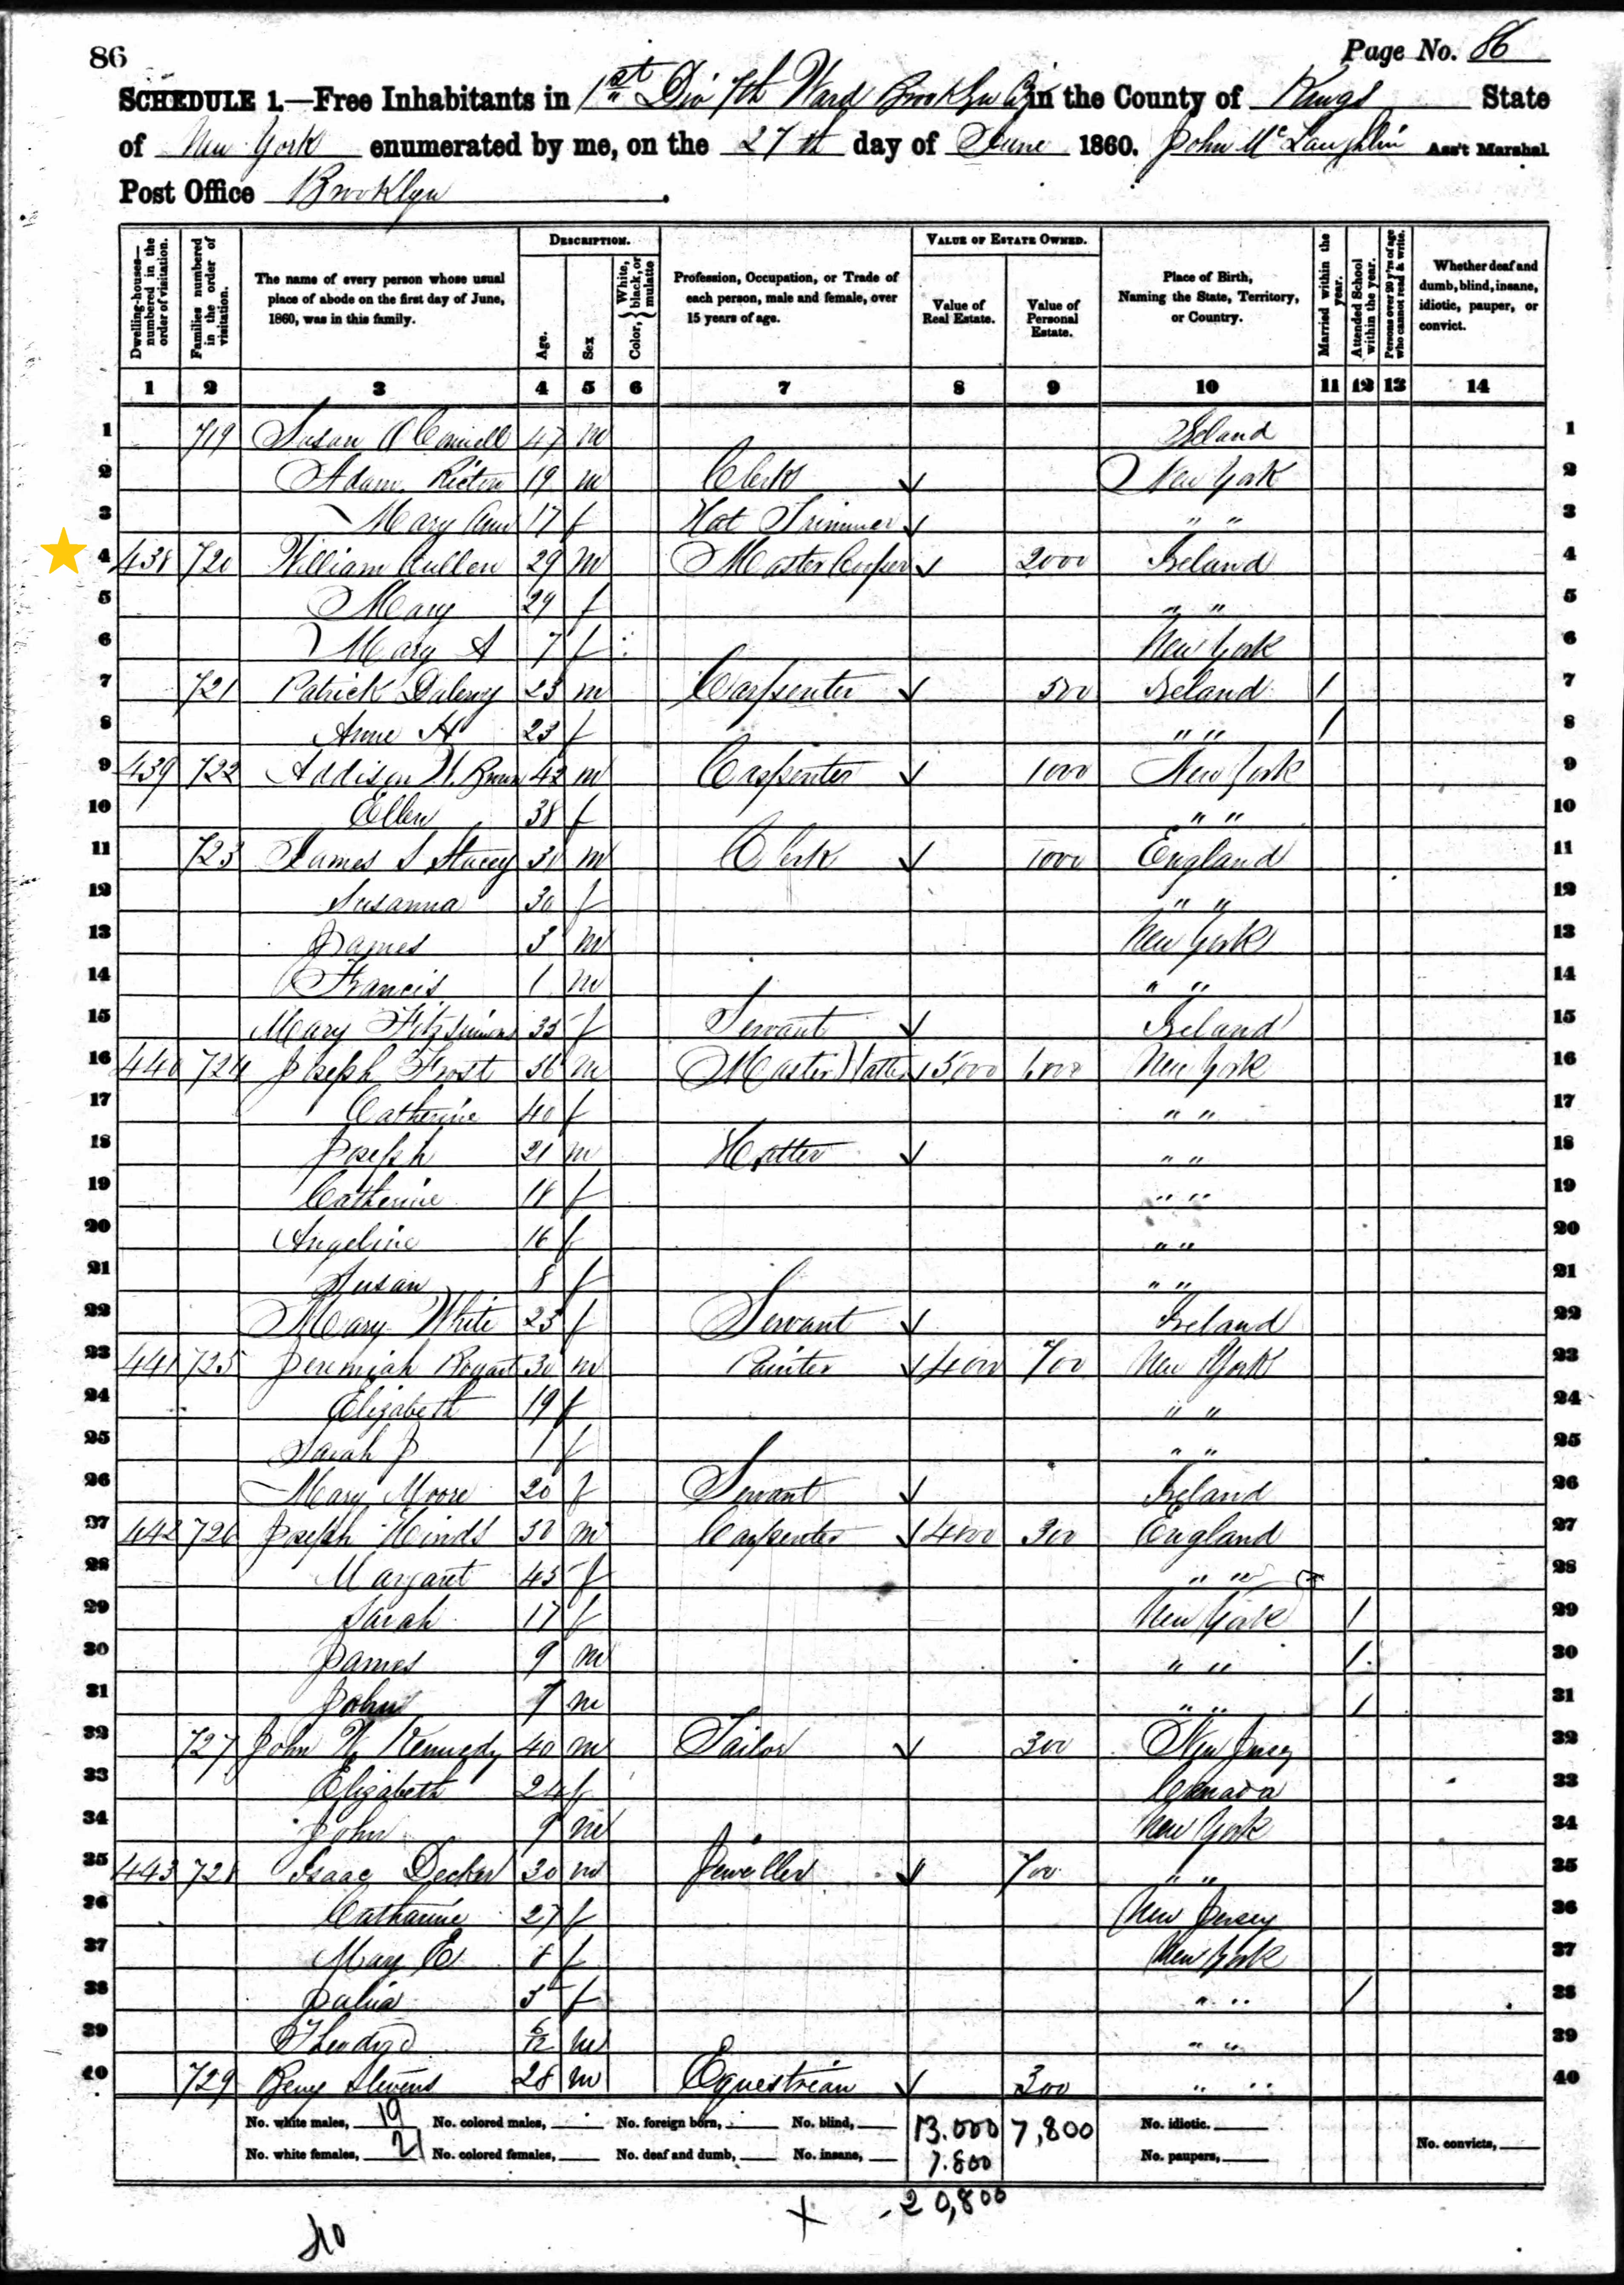 86
Page No. 86
SCHEDULE 1.—Free Inhabitants in 1st Div 7th Ward Brooklyn City in the County of Kings State
of New York enumerated by me, on the 27th day of June 1860. John McLaughlin Ass't Marshal
Post Office Brooklyn.
Dwelling-houses—numbered in the order of visitation.
Families numbered in the order of visitation.
The name of every person whose usual place of abode on the first day of June, 1860, was in this family.
DESCRIPTION.
Age.
Sex
Color, { White, black, or mulatto
Profession, Occupation, or Trade of each person, male and female, over 15 years of age.
VALUE OF ESTATE OWNED.
Value of Real Estate.
Value of Personal Estate.
Place of Birth, Naming the State, Territory, or Country.
Married within the year.
Attended School within the year.
Persons over 20 y'rs of age who cannot read & write.
Whether deaf and dumb, blind, insane, idiotic, pauper, or convict.
1 2 3 4 5 6 7 8 9 10 11 12 13 14
1 719 Susan O'Connell 47 m Ireland 1
2 Adam 19 m Clerk New York 2
3 Mary Ann 17 f Hat Trimmer " " 3
4 438 720 William Cullen 29 m Master Cooper 2000 Ireland 4
5 Mary 29 f " " 5
6 Mary A 7 f New York 6
7 721 Patrick 23 m Carpenter 500 Ireland / 7
8 Anne H 23 f " " / 8
9 439 722 Addison W. Brown 42 m Carpenter 1000 New York 9
10 Ellen 38 f " " 10
11 723 James S Stacey 31 m Clerk 1000 England 11
12 Susanna 30 f " " 12
13 James 3 m New York 13
14 Francis 1 m " " 14
15 Mary Fitzsimons 35 f Servant Ireland 15
16 440 724 Joseph Frost 56 m Master Hatter 5,000 New York 16
17 Catherine 40 f " " 17
18 Joseph 21 m Hatter " " 18
19 Catherine 18 f " " 19
20 Angeline 16 f " " 20
21 Susan 8 f " " 21
22 Mary White 25 f Servant Ireland 22
23 441 725 Jeremiah Bogart 30 m Painter 4000 700 New York 23
24 Elizabeth 19 f " " 24
25 Sarah J 1 f " " 25
26 Mary Moore 20 f Servant Ireland 26
27 442 726 Joseph Hinds 50 m Carpenter 4000 300 England 27
28 Margaret 45 f " " 28
29 Sarah 17 f New York / 29
30 James 9 m " " / 30
31 John 7 m " " / 31
32 727 John W Kennedy 40 m Tailor 300 New Jersey 32
33 Elizabeth 24 f Canada 33
34 John 9 m New York 34
35 443 728 Isaac Decker 30 m Jeweller 700 " " 35
36 Catharine 27 f New Jersey 36
37 Mary E 8 f New York 37
38 Julia 5 f " " / 38
39 6/12 m " " 39
40 729 Benj Stevens 28 m Equestrian 300 " " 40
No. white males, 19 No. colored males, No. foreign born, No. blind, 13.000 7,800 No. idiotic.
No. white females, 21 No. colored females, No. deaf and dumb, No. insane, 7.800 No. paupers, No. convicts,
20,800
40